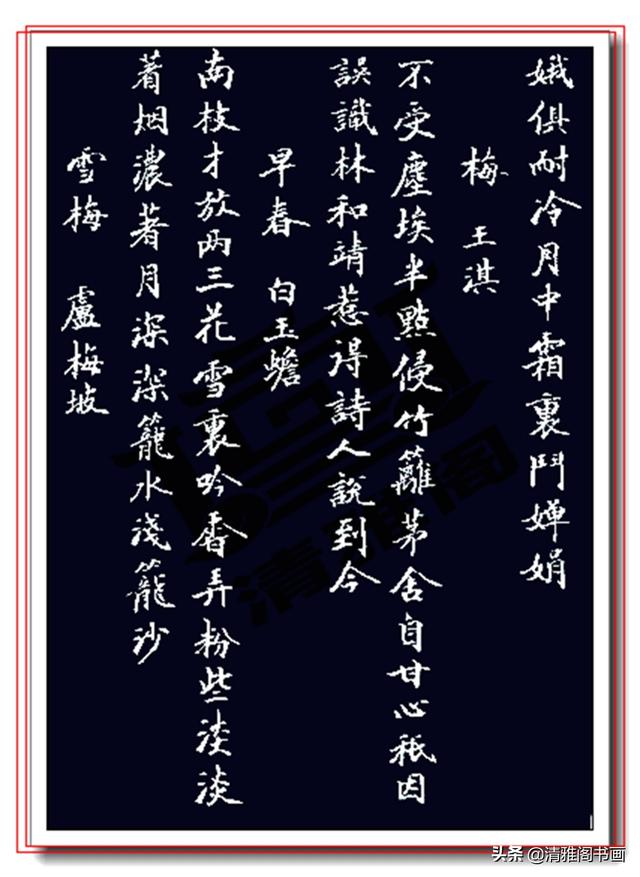 娥俱耐冷月中霜裏鬥嬋娟
梅 王淇
不受塵埃半點侵竹籬茅舍自甘心秖因
誤識林和靖惹得詩人說到今
早春 白玉蟾
南枝才放两三花雪裏吟香弄粉些淡淡
著烟濃著月深深籠水淺籠沙
雪梅 盧梅坡
清雅阁
头条@清雅阁书画